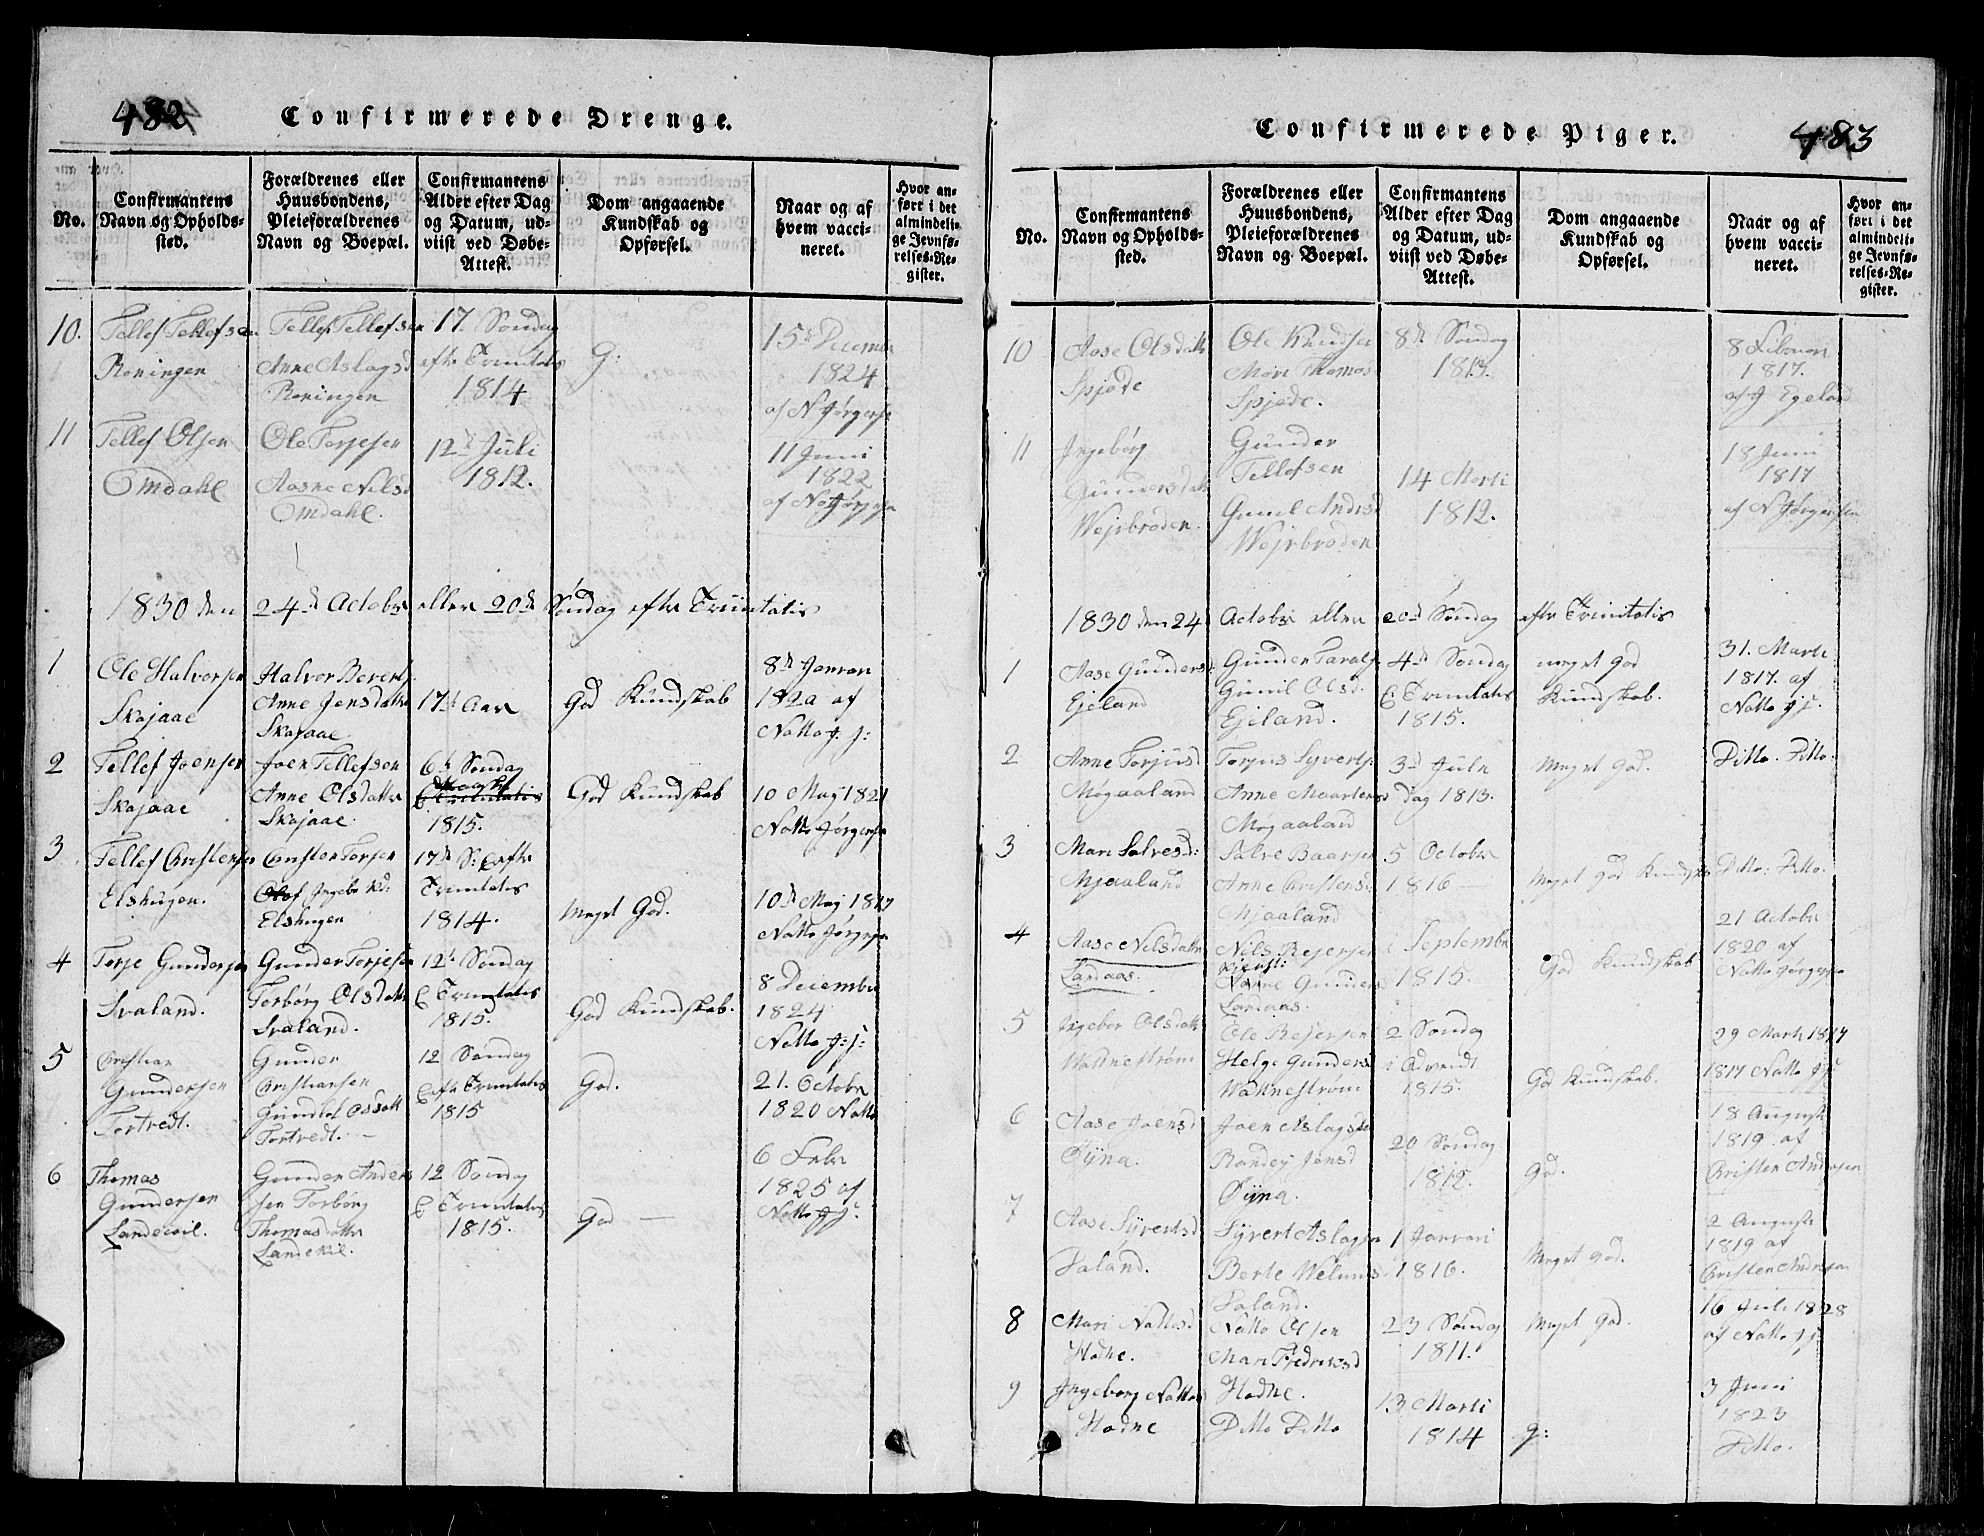 482
Confirmerede Drenge.
No.
Confirmantens
Navn og Opholds-
sted.
Forældrenes eller
Huusbondens,
Pleieforældrenes
Navn og Boepæl.
Confirmantens
Alder efter Dag
og Datum, ud-
viist ved Døbe-
Attest.
Dom angaaende
Kundskab og
Opførsel.
Naar og af
hvem vacci-
neret.
Hvor an-
ført i det
almindeli-
ge Jevnfø-
relses-Re-
gister.
10.
Tellef Tellefsen
Roningen
Tellef Tellefsen
Anne Aslagsd
Roningen
17. Søndag
eftr Trinitatis
1814
G:
15de Decembr
1824
af N Jørgensn
11
Tellef Olsen
Omdahl
Ole Torjesen
Aasne Nilsd
Omdahl.
12te Juli
1812.
11 Juni
1822
af Jørgensn
1830 den 24de Octobr eller 20de Søndag eftr Trinitatis
1
Ole Halvorsen
Skajaae
Halvor Berents
Anne Jensdattr
Skajaae
17de Aar
God Kundskab
8de Januar
1820 af
Natto J. J:
2
Tellef Joensen
Skajaae
Joen Tellefsen
Anne Olsdattr
Skajaae.
6te Søndag
E Trinitatis
1815.
God Kundskab
10 May 1821
Natto Jørgensn
3
Tellef Christensen
Elshugen.
Christen Torjsen
Ingebr Kd:
Elshugen
17de S: Eeftr
Trinitatis
1814.
Meget God.
10de May 1817
Natto Jørgensn
4
Torje Gundersen
Svaland.
Gunder Torjesen
Torbørg Olsdattr
Svaland.
12te Søndag
E Trinitatis
1815.
God Kundskab.
8 Decembr
1824
Natto J: J:
5
Christian
Gundersen
Tortvedt.
Gunder
Christiansen
Gundlol Osdatt
Tortvedt. —
12 Søndag
Eeftr Trinitatis
1815
God.
21. Octobr
1820 Natto
6
Thomas
Gundersen
Landekil.
Gunder Anders
sen Torbørg
Thomasdattr
Landekil.
12 Søndag
E Trinitatis
1815.
God —
6 Febr
1825 af
Natto J J:
483
Confirmerede Piger.
No.
Confirmantens
Navn og Opholds-
sted.
Forældrenes eller
Huusbondens,
Pleieforældrenes
Navn og Boepæl.
Confirmantens
Alder efter Dag
og Datum, ud-
viist ved Døbe-
Attest.
Dom angaaende
Kundskab og
Opførsel.
Naar og af
hvem vacci-
neret.
Hvor an-
ført i det
almindeli-
ge Jevnfø-
relses-Re-
gister.
10
Aase Olsdattr
Spjøde
Ole Knudsen
Mari Thomas
Spjøde.
8de Søndag
1813.
8 Februari
1817.
af J Egeland
11
Ingebørg
Gundersdatt
Wejrbroden.
Gunder
Tellefsen
Gunil Andrsd
Wejrbroden
14 Marti
1812.
18 Juni
1817
af N Jørgensen
1830 den 24 Octobr eller 20de Søndag eftr Trinitatis
1
Aase Gunders
Ejeland
Gunder Taralsn
Gunil Olsd.
Ejeland.
4de Søndag
E Trinitatis
1815.
meget God
Kundskab.
31. Marti
1817. af
Natto J J:
2
Anne Torjusd
Møgaaland
Torjus Syverts
Anne Maartensd
Møgaaland
3de Jule
dag 1813.
Meget God.
Ditto. Ditto.
3
Mari Salvesd:
Mjaaland
Salve Baarsen
Anne Christensd.
Mjaaland
5 Octobr
1816 —
Meget God Kundskab
Ditto: Ditto.
4
Aase Nilsdattr
Landaas.
Nils Rejersen
Kjersti
Gunders
Landaas.
i Septembr
1815.
God Kundskab
21 Octobr
1820 af
Natto Jørgensn
5
Ingebor Olsdattr
Watnestrøm
Ole Rejersen
Helge Gunders
Watnestrøm
2 Søndag
i Advendt
1815.
God Kundskab.
29 Marti 1817
1817 Natto J J:
6
Aase Joensd
Øyna.
Joen Aslagsen
Randej Jonsd
Øyna.
20 Søndag
1812.
God.
18 Augusti
1819 af
Christen Andersen
7
Aase Syvertsd
Daland.
Syvert Aslagsn
Berte Welumsd
Daland.
1 Januari
1816.
Meget God.
2 Augusti
1819 af
Christen Andersen
8
Mari Nattosd
Hodne.
Natto Olsen
Mari Fredriksd
Hodne.
23 Søndag
1811.
Meget God.
16 Juli 1828
af Natto J J:
9
Ingeborg Nattosd
Hodne
Ditto Ditto
13 Marti
1814
g:
3 Juni
1823
Ditto.